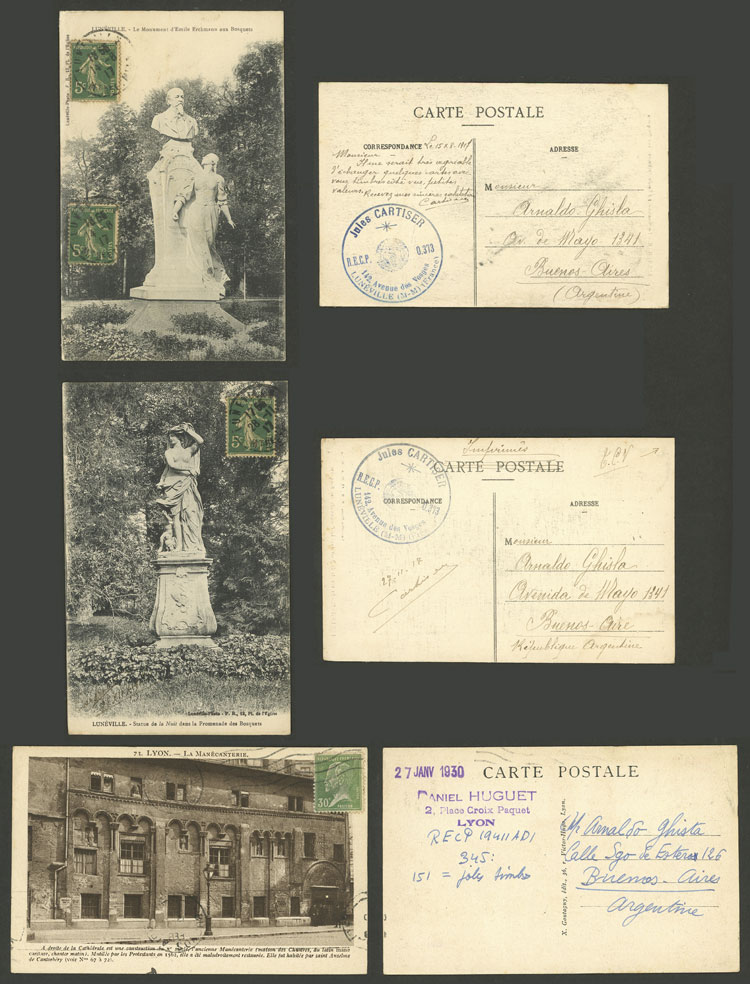 LUNÉVILLE. - Le Monument d'Emile Erckmann aux Bosquets
5c
5c
CARTE POSTALE
CORRESPONDANCE
ADRESSE
Monsieur
Il me serait très agréable
d'échanger quelques cartes avec
vous timbres côté vue, petites
valeurs.
Jules CARTISER
R.E.C.P. 0.313
142, Avenue des Vosges
LUNÉVILLE (M-M) (France)
Monsieur
Arnaldo Ghisla
Av. de Mayo 1341
Buenos-Aires
(Argentine)
5c
Lunéville-Photo - P. R., 12, Pl. de l'Eglise
LUNÉVILLE. - Statue de la Nuit dans la Promenade des Bosquets
Imprimés
CARTE POSTALE
CORRESPONDANCE
ADRESSE
Jules CARTISER
R.E.C.P. 0.313
142, Avenue des Vosges
LUNÉVILLE (M-M)
Monsieur
Arnaldo Ghisla
Avenida de Mayo 1341
Buenos-Aire
République Argentine
71. LYON. — LA MANÉCANTERIE.
30c
A droite de la Cathédrale est une construction du
l'ancienne Manécanterie (maison des Chantres, du latin mane
cantare, chanter matin). Mutilée par les Protestants en 1562, elle a été maladroitement restaurée. Elle fut habitée par saint Anselme
de Cantorbéry (voir Nos 67 à 72).
27 JANV 1930
CARTE POSTALE
DANIEL HUGUET
2, Place Croix Paquet
LYON
RECP 19411 ADI
345:
151 = jolis timbre
X. Goutagny, édit., 36, r. Victor-Hugo, Lyon.
Mr Arnaldo Ghisla
Calle Sgo de Estero 126
Buenos-Aires
Argentine